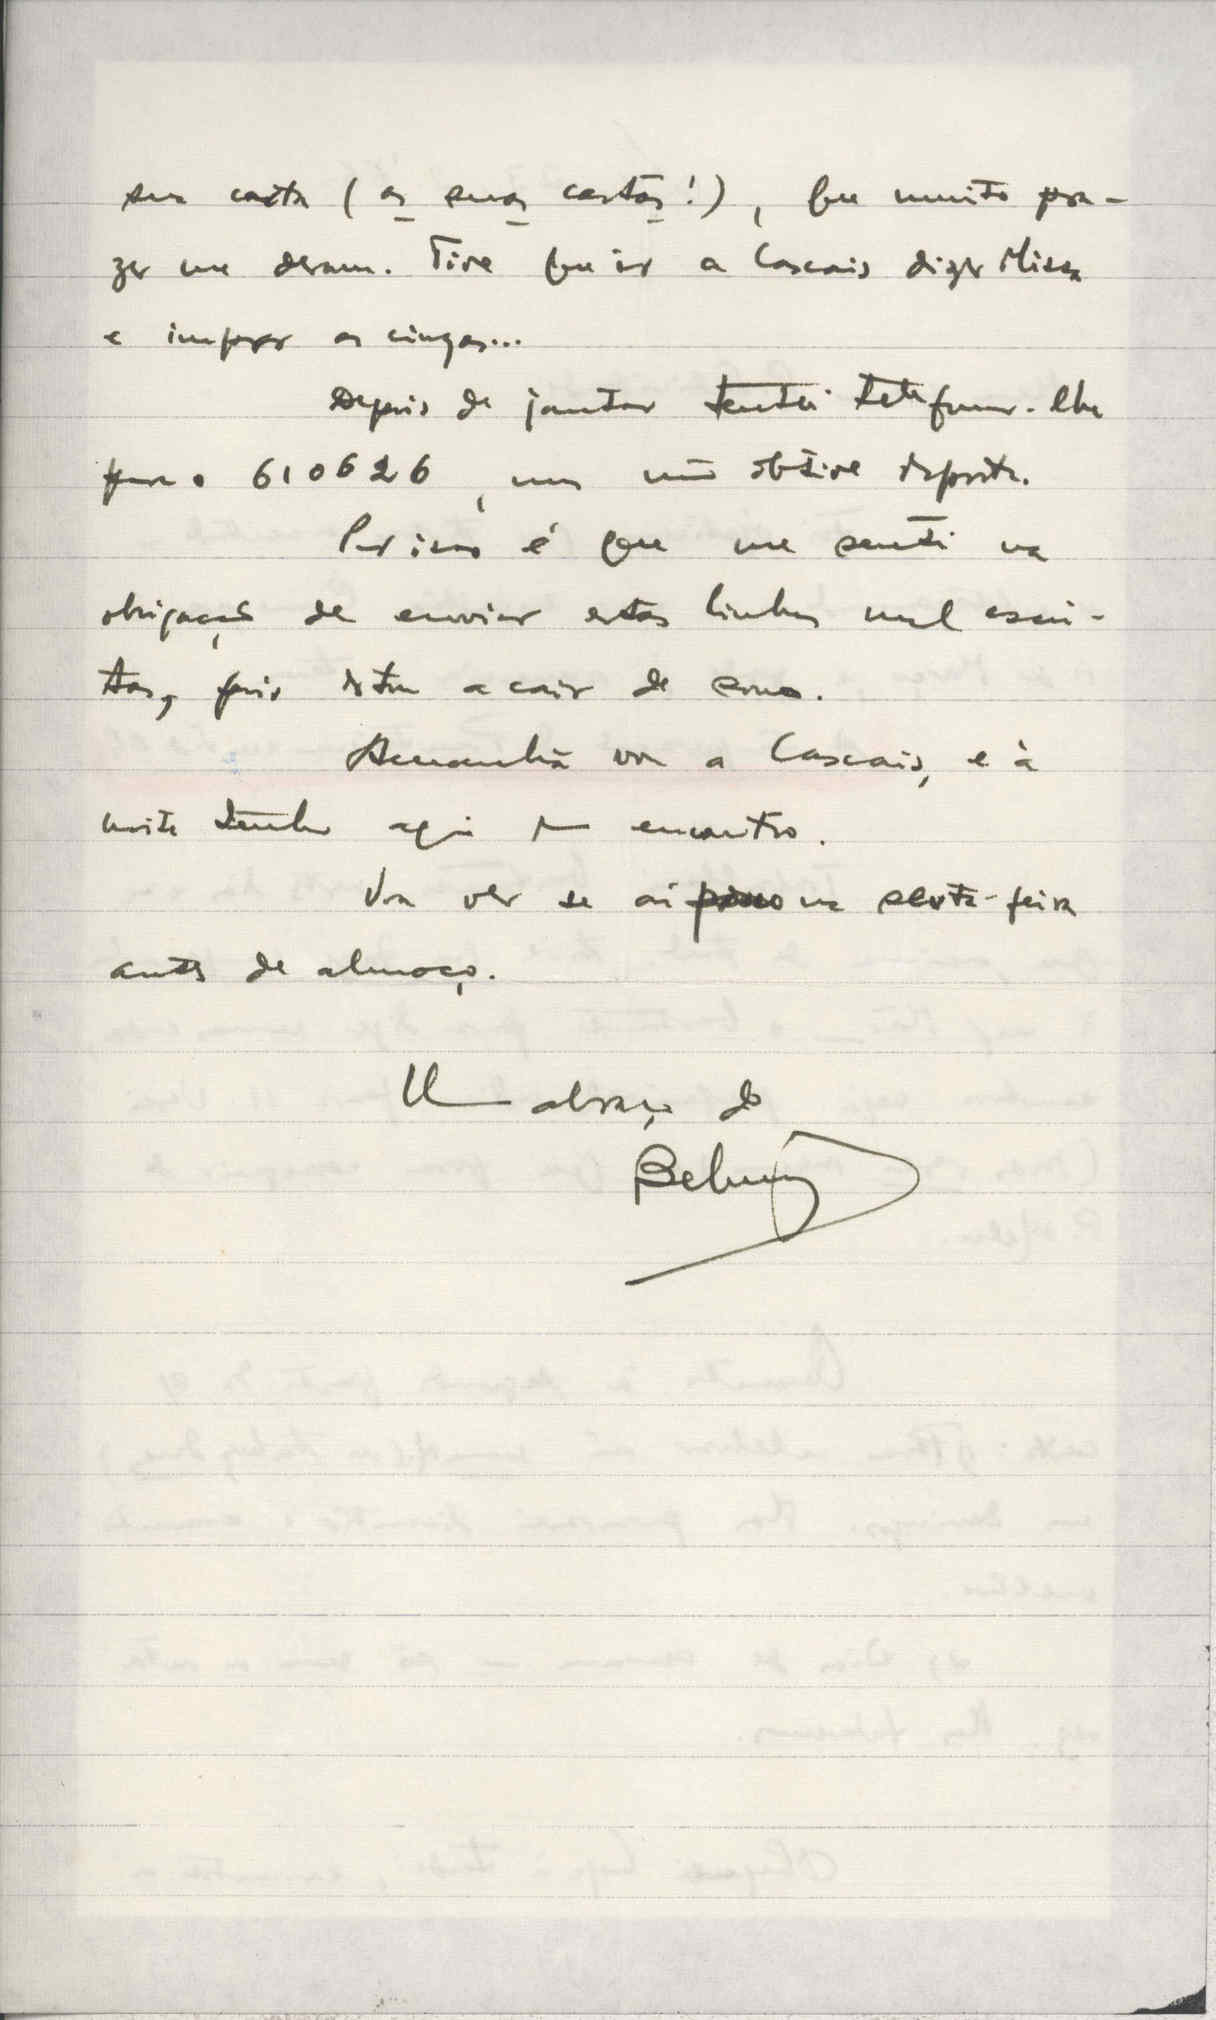 sua carta (as suas cartas!), que muito pra-
zer me deram. Tive que ir a Cascais dizer Missa
e impor as cinzas...
Depois de jantar tentei telefonar-lhe
para o 610626, mas não obtive resposta.
Por isso é que me senti na
obrigação de enviar estas linhas mal escri-
tas, pois estou a cair de sono.
Amanhã vou a Cascais, e à
noite tenho aqui um encontro.
Vou ver se aí na sexta-feira
antes de almoço.
Um abraço do